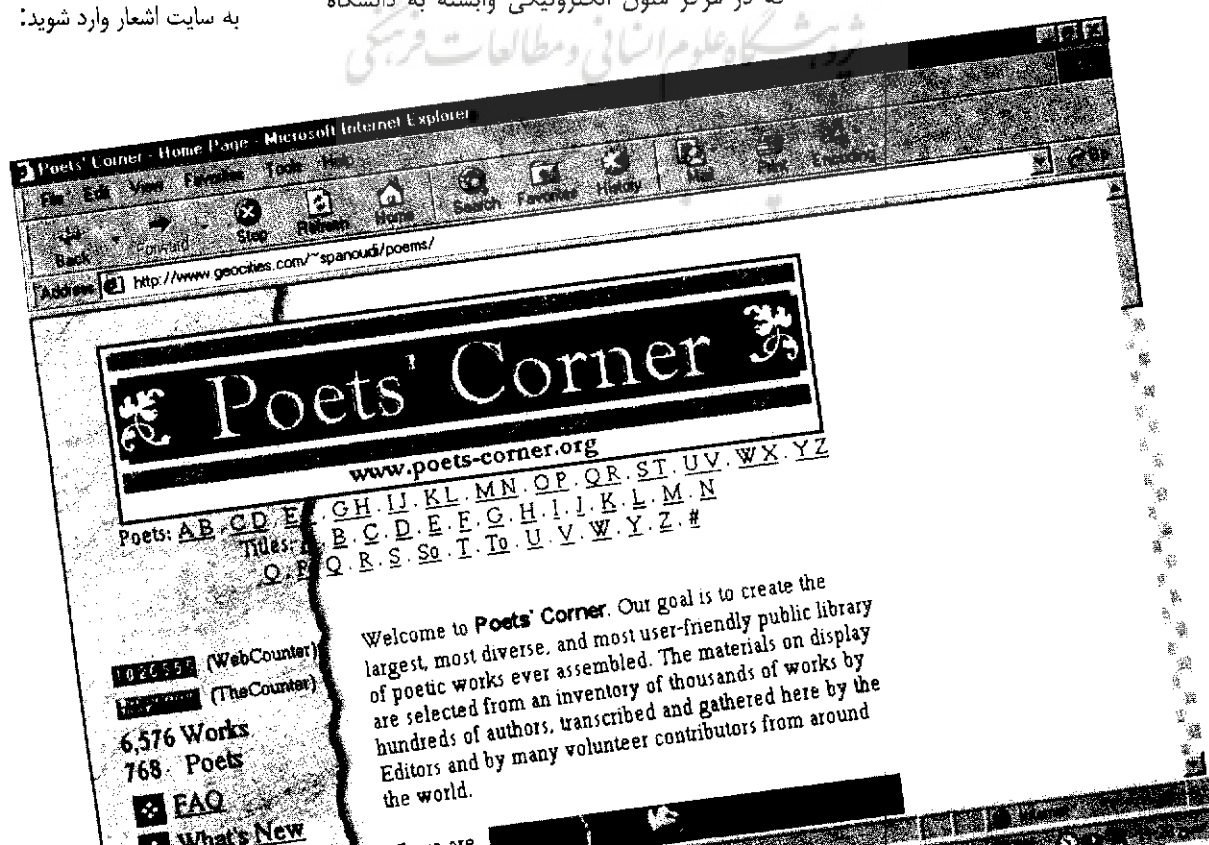 که در مرکز متون الکترونیکی وابسته به دانشگاه
به سایت اشعار وارد شوید:
پژوهشگاه علوم انسانی و مطالعات فرهنگی
Poets' Corner - Home Page - Microsoft Internet Explorer
File Edit View Favorites Tools Help
Back Forward Stop Refresh Home Search Favorites History Mail Print Encoding
Address http://www.geocities.com/~spanoudi/poems/ Go
Poets' Corner
www.poets-corner.org
Poets: A B . C D . E . G H . I J . K L . M N . O P . Q R . S T . U V . W X . Y Z
Titles: . B . C . D . E . F . G . H . I . J . K . L . M . N
O . P . Q . R . S . So . T . To . U . V . W . Y . Z . #
Welcome to Poets' Corner. Our goal is to create the
largest, most diverse, and most user-friendly public library
of poetic works ever assembled. The materials on display
are selected from an inventory of thousands of works by
hundreds of authors, transcribed and gathered here by the
Editors and by many volunteer contributors from around
the world.
(WebCounter)
(TheCounter)
6,576 Works
768 Poets
FAQ
What's New
are